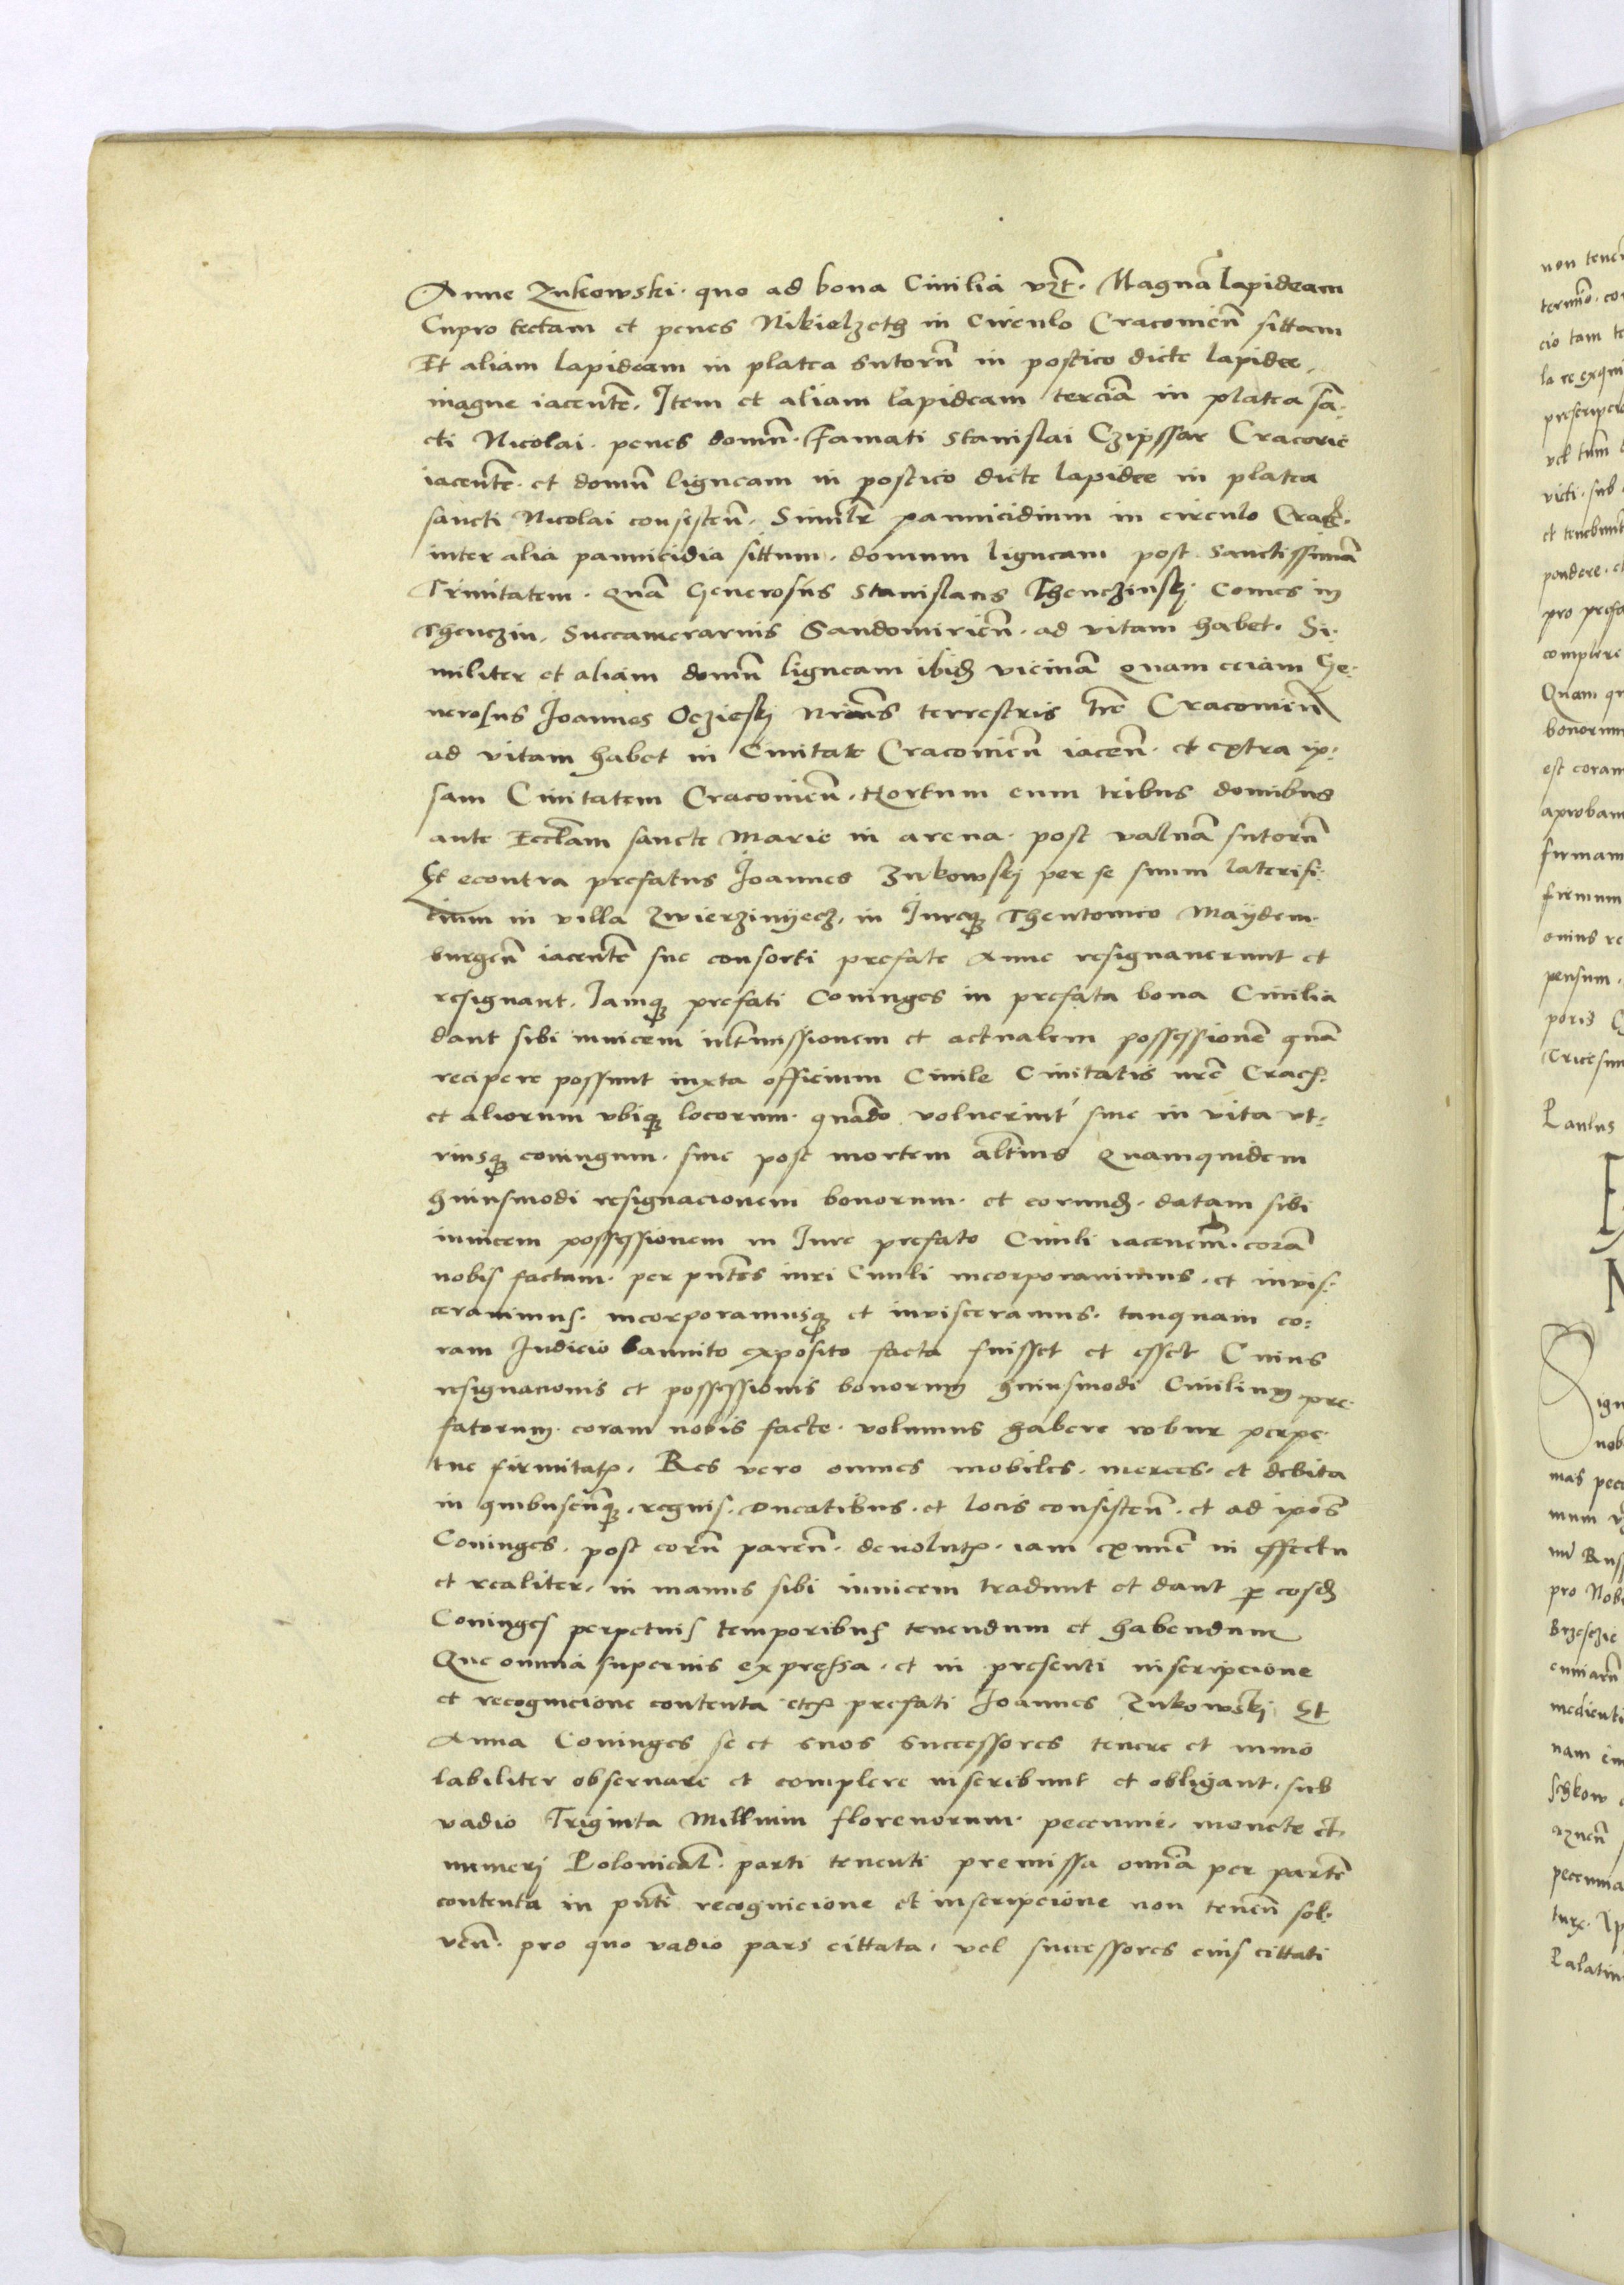 Anne Zukowski. quo ad bona Ciuilia vzt. Magnã lapideam
Cupro tectam et penes Nikielzeth in Circulo Cracouieñ sittam
Et aliam lapideam in platea sutorũ in postico dicte lapidee,
magne iacentẽ. Item et aliam lapideam terciã in platea sã-
cti Nicolai. penes domũ. Famati Stanislai Czipssar Cracouie
iacentẽ. et domũ ligneam in postico dicte lapidee in platea
sancti Nicolai consisteñ. Similr pannicidium in circulo Crac.
inter alia pannicidia sittum. domum ligneam post Sanctissimã
Trinitatem. quã Generosus Stanislaus Thenczinskj Comes in
Thenczin, Succamerarius Sandomirieñ. ad vitam habet. Si-
militer et aliam domũ ligneam ibid vicinã quam eciam Ge-
nerosus Joannes Oczieskj terrestris tre Cracouieñ
ad vitam habet in Ciuitate Cracouieñ iaceñ. et extra ip-
sam Ciuitatem Cracouieñ. Hortum cum tribus domibus
ante Eccłam sancte Marie in arena. post valuã sutorũ
Et econtra prefatus Joannes Zukowskj per se suum laterifi-
cium in villa Zwierzinyecz, in Jureq Theutonico Maydem-
burgeñ iacentẽ sue consorti prefate Anne resignauerunt et
resignant. Iamq prefati Coniuges in prefata bona Ciuilia
dant sibi inuicem intmissionem et actualem possessionẽ quã
recipere possunt iuxta officium Ciuile Ciuitatis nre Crac.
et aliorum vbiq locorum. quãdo voluerint siue in vita vt-
riusq coniugum. siue post mortem altius Quamquidem
huiusmodi resignacionem bonorum. et eorund. datam sibi
inuicem possessionem in Jure prefato Ciuili iacencium. corã
nobis factam. per pñtes iuri Ciuili incorporauimus. et inuis-
cerauimus. incorporamusq et inuisceramus. tanquam co-
ram Judicio bannito exposito facta fuisset et esset Cuius
resignacionis et possessionis bonorum huiusmodi Ciuilium pre-
fatorum. coram nobis facte. volumus habere robur perpe-
tue firmitatp. Res vero omnes mobiles. merces. et debita
in quibuscũq. regnis. Ducatibus. et locis consisteñ. et ad ipos
Coniuges. post eorũ pareñ. deuolutp. iam exnunc in effectu
et realiter, in manus sibi inuicem tradunt et dant p eosd
Coniuges perpetuis temporibus tenendum et habendum
Que omnia superius expressa. et in presenti inscripcione
et recognicione contenta prefati Joannes Zukowskj Et
Anna Coniuges se et suos successores tenere et inuio
labiliter obseruare et complere inscribunt et obligant. sub
vadio Triginta Millium florenorum. pecunie. monete et
numerj Polonicał. parti tenenti premissa omĩa per partẽ
contenta in pñti recognicione et inscripcione non teneñ sol-
ueñ. pro quo vadio pars cittata, vel successores eius cittati